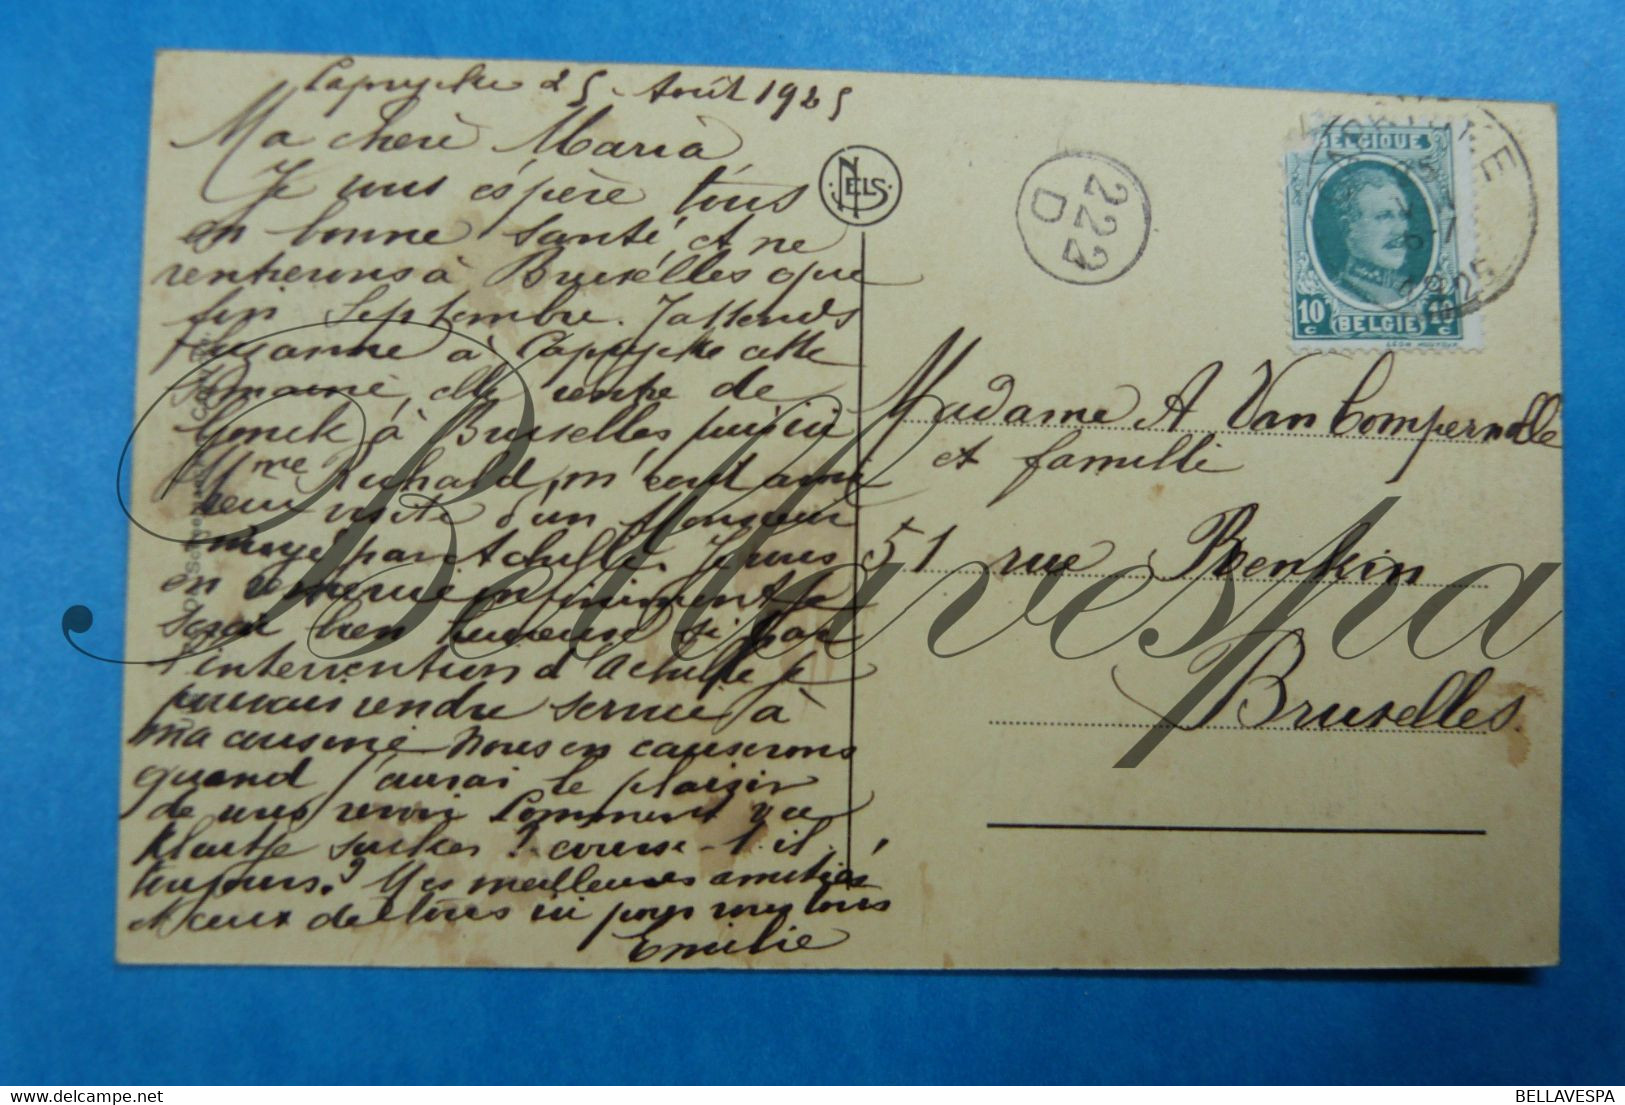 Caprycke 25 Août 1925
Ma chère Maria,
Je vous espère tous
en bonne santé, et ne
rentrerons à Bruxelles que
fin Septembre. J'attends
Suzanne à Caprycke cette
semaine, elle rentre de
à Bruxelles puis ici
Mme Richald, m'écrit avoir
reçu visite d'un Monsieur
envoyé par Achille. Je vous
en remercie infiniment je
serai bien heureuse si par
l'intervention d'Achille je
pouvais rendre service à
ma cousine. Nous en causerons
quand j'aurai le plaisir
de vous revoir. Comment va
? course-t-il
toujours? Mes meilleures amitiés
et ceux de tous ici pour vous tous
Emilie
NELS
222
D
BELGIQUE
10c BELGIE 10c
1925
Madame A Van Compernolle
et famille
51 rue Renkin
Bruxelles
Bellavespa
BELLAVESPA